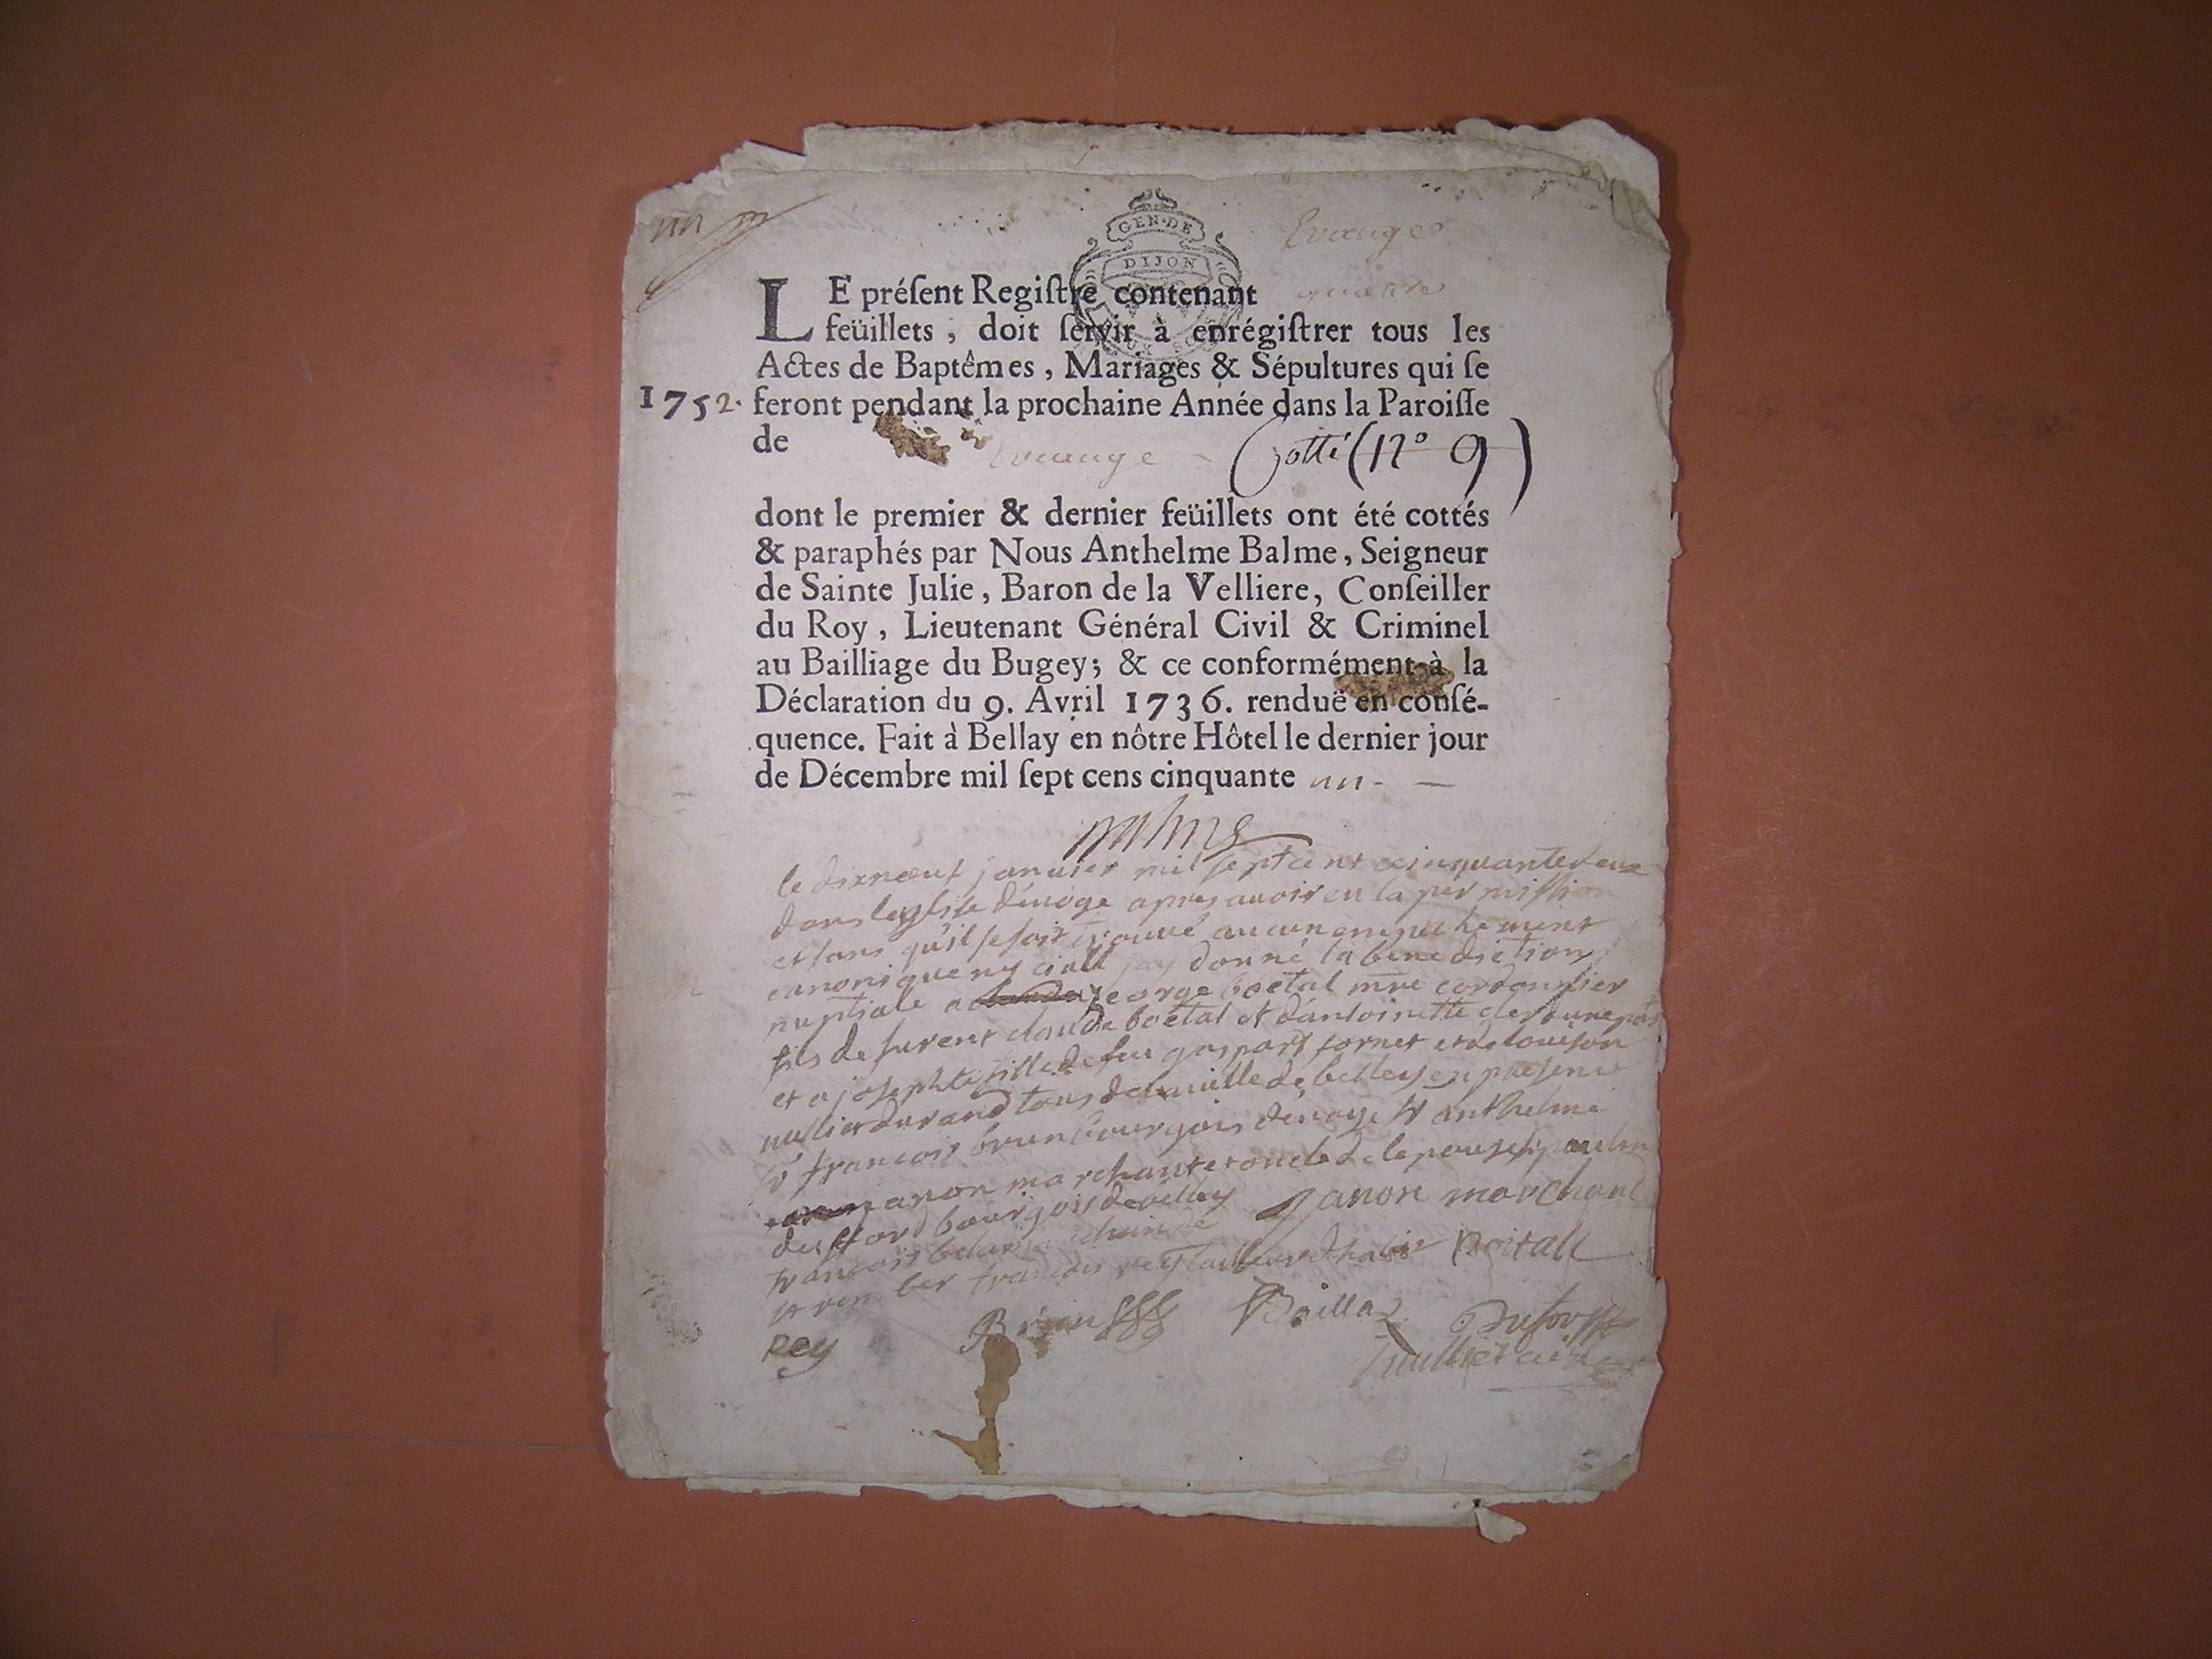 GEN·DE
DIJON
Evauges
LE préſent Regiſtre contenant quattre
feüillets, doit ſervir à enrégiſtrer tous les
Actes de Baptêmes, Mariages & Sépultures qui ſe
1752. feront pendant la prochaine Année dans la Paroiſſe
de Evauge Cotté (N° 9)
dont le premier & dernier feüillets ont été cottés
& paraphés par Nous Anthelme Balme, Seigneur
de Sainte Julie, Baron de la Velliere, Conſeiller
du Roy, Lieutenant Général Civil & Criminel
au Bailliage du Bugey; & ce conformément à la
Déclaration du 9. Avril 1736. renduë en conſé-
quence. Fait à Bellay en nôtre Hôtel le dernier jour
de Décembre mil ſept cens cinquante un
le dixneuf janvier mil sept cent cinquantedeux
dans leglise devoge apres avoir eu la permission
et sans qu'il se soit trouvé aucun empechement
canonique ny civill jay donné la benediction
nuptiale a george boetal mre cordonnier
fils de furent claude boetal et dantoinette
et a josephte fille de feu gaspard fornet et de louison
durand tous de la ville de belley en presence
sr francois brun bourgois devoge sr anthelme
janon marchant et oncle de lepouse sr
bourgois de belley janon marchant
francois
francois rey tailleur dhabit Boitall
Rey Brun Boillaz Dufour